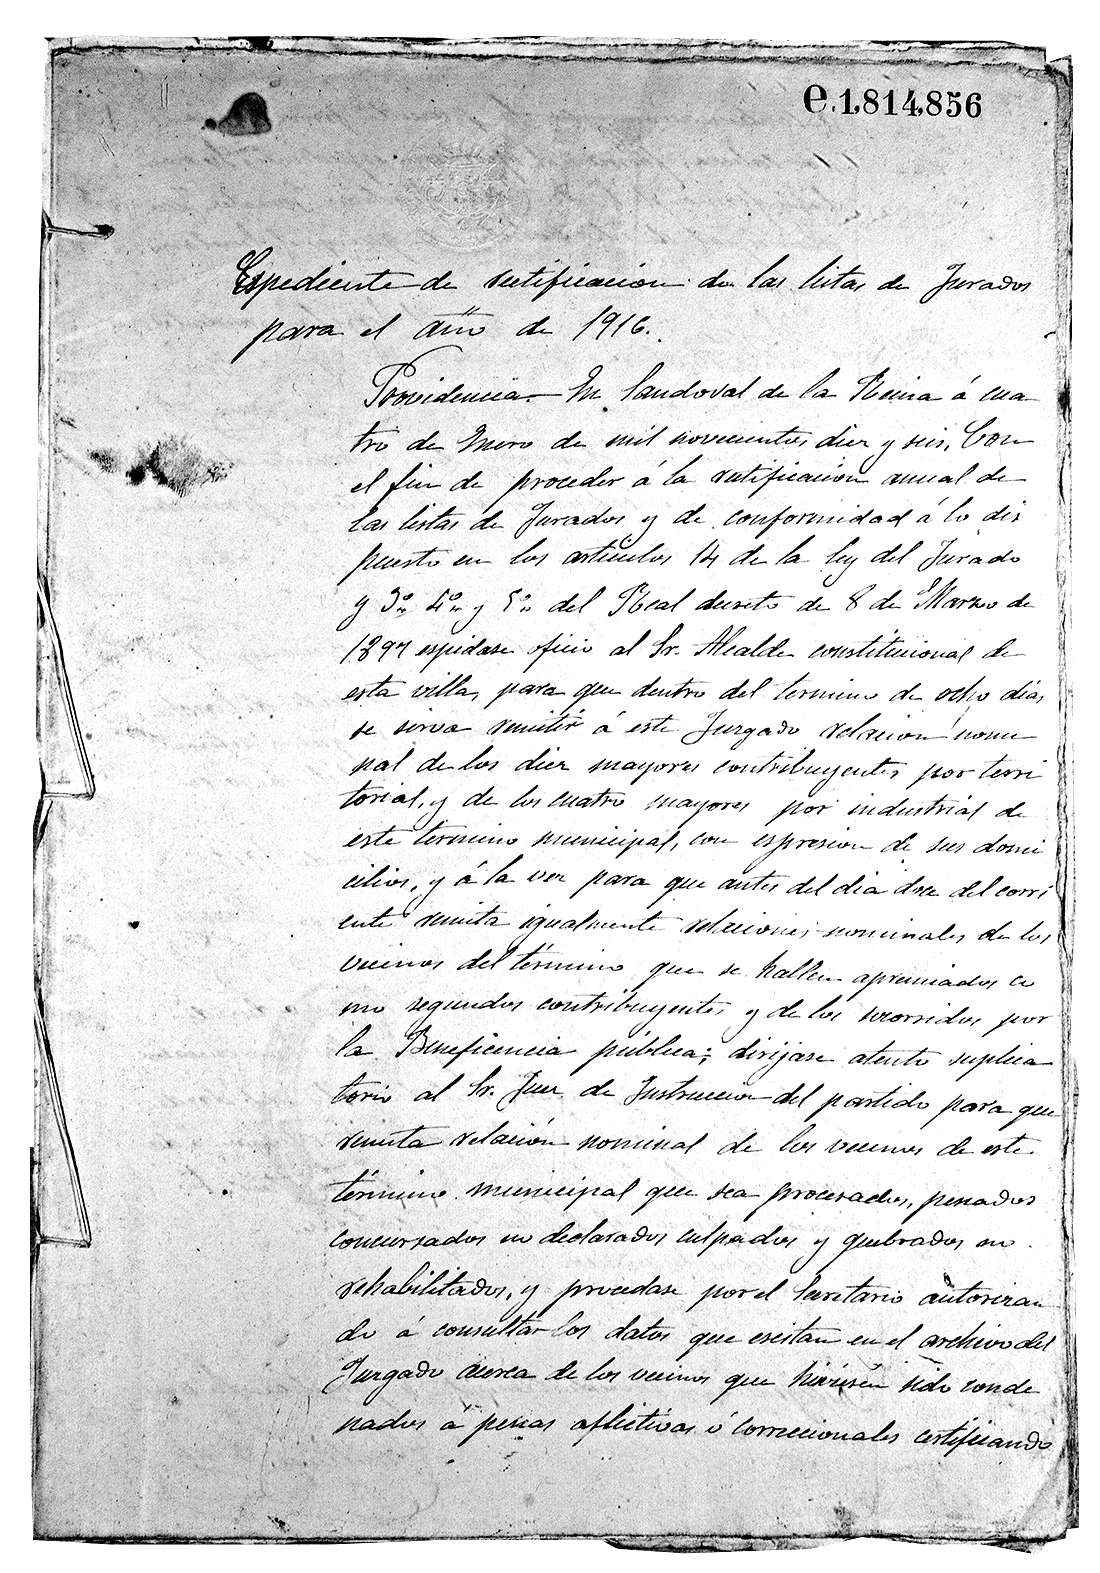 e.1,814,856
Espediente de rectificacion de las listas de Jurados
para el año de 1916.
Providencia.- En Sandoval de la Reina á cua
tro de Enero de mil novecientos diez y seis. Con
el fin de proceder á la rectificación anual de
las listas de Jurados y de conformidad á lo dis
puesto en los artículos 14 de la ley del Jurado
y 3º 4º y 5º del Real decreto de 8 de Marzo de
1897 espidase oficio al Sr. Alcalde constitucional de
esta villa, para que dentro del termino de ocho dias,
se sirva remitir á este Juzgado relación nomi
nal de los diez mayores contribuyentes por terri
torial, y de los cuatro mayores por industrial de
este termino municipal, con espresion de sus domi
cilios, y á la vez para que antes del dia doce del corri
ente remita igualmente relaciones nominales de los
vecinos del término que se hallen apremiados co
mo segundos contribuyentes y de los socorridos por
la Beneficencia pública; dirijase atento suplica
torio al Sr. Juez de Instruccion del partido para que
remita relación nominal de los vecinos de este
término municipal que sea procesados, penados
concursados no declarados culpados y quebrados no
rehabilitados, y procedase por el Secretario autorizan
do á consultar los datos que esistan en el archivo del
Juzgado acerca de los vecinos que hubiesen sido conde
nados á penas aflictivas ó correccionales certificando